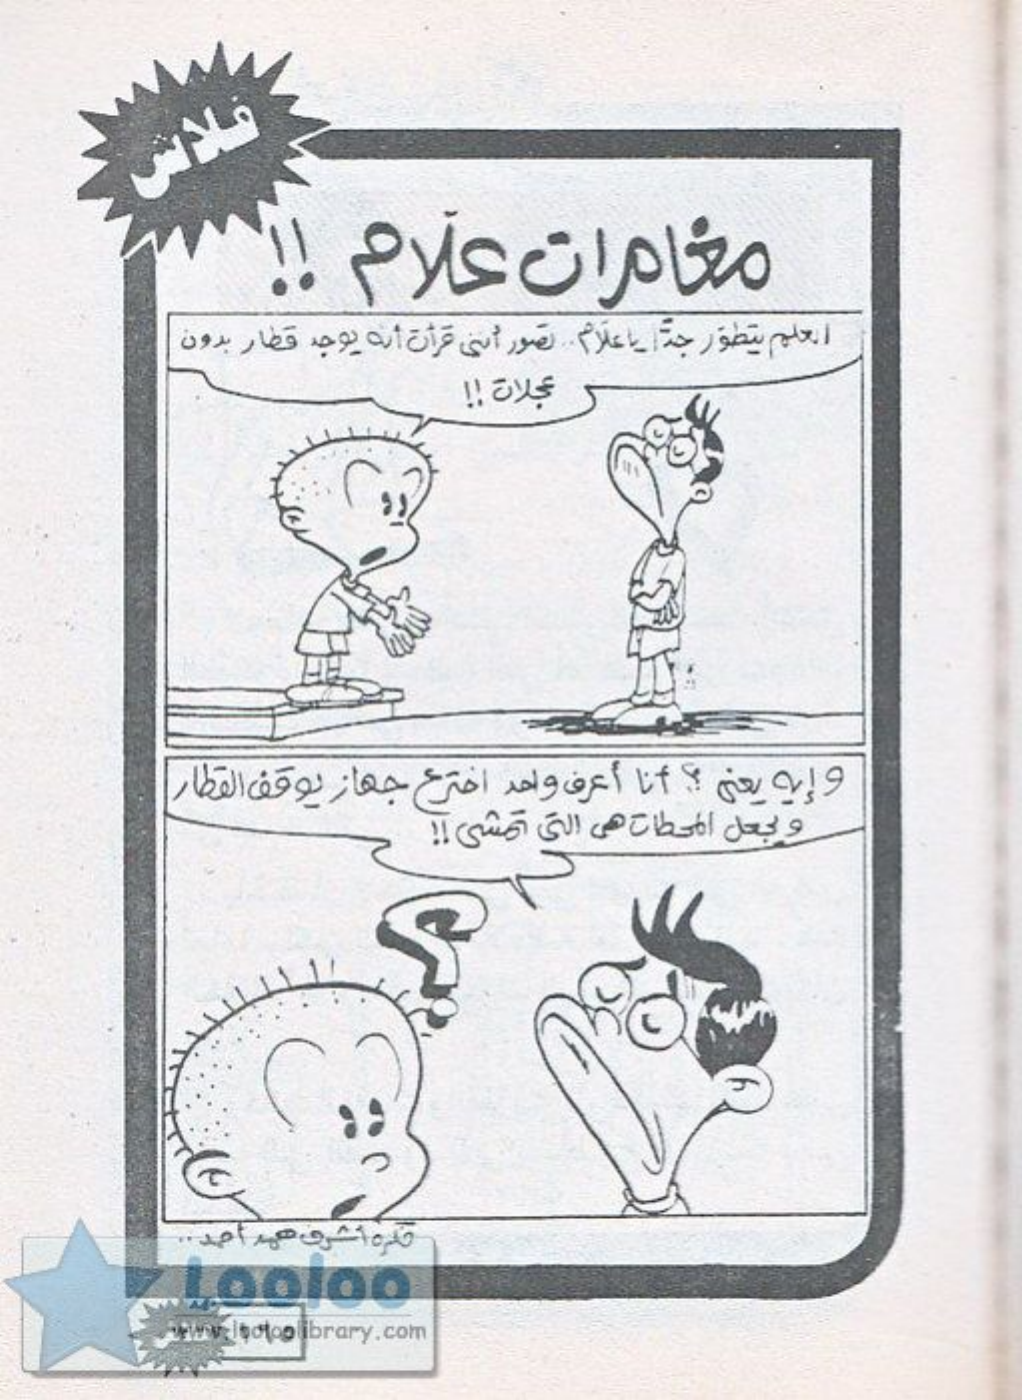 فلاش
مغامرات علّام !!
العلم يتطور جدًّا يا علّام.. تصور أننى قرأت أنه يوجد قطار بدون
عجلات !!
و إيه يعنى ؟ أنا أعرف واحد اخترع جهاز يوقف القطار
ويجعل المحطات هى التى تمشى !!
فكرة أشرف محمد أحمد..
Looloo
www.looloolibrary.com